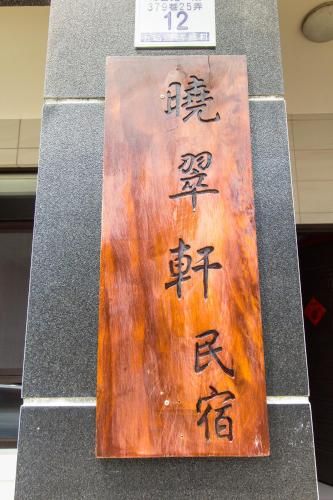 379巷25弄
12
曉翠軒民宿